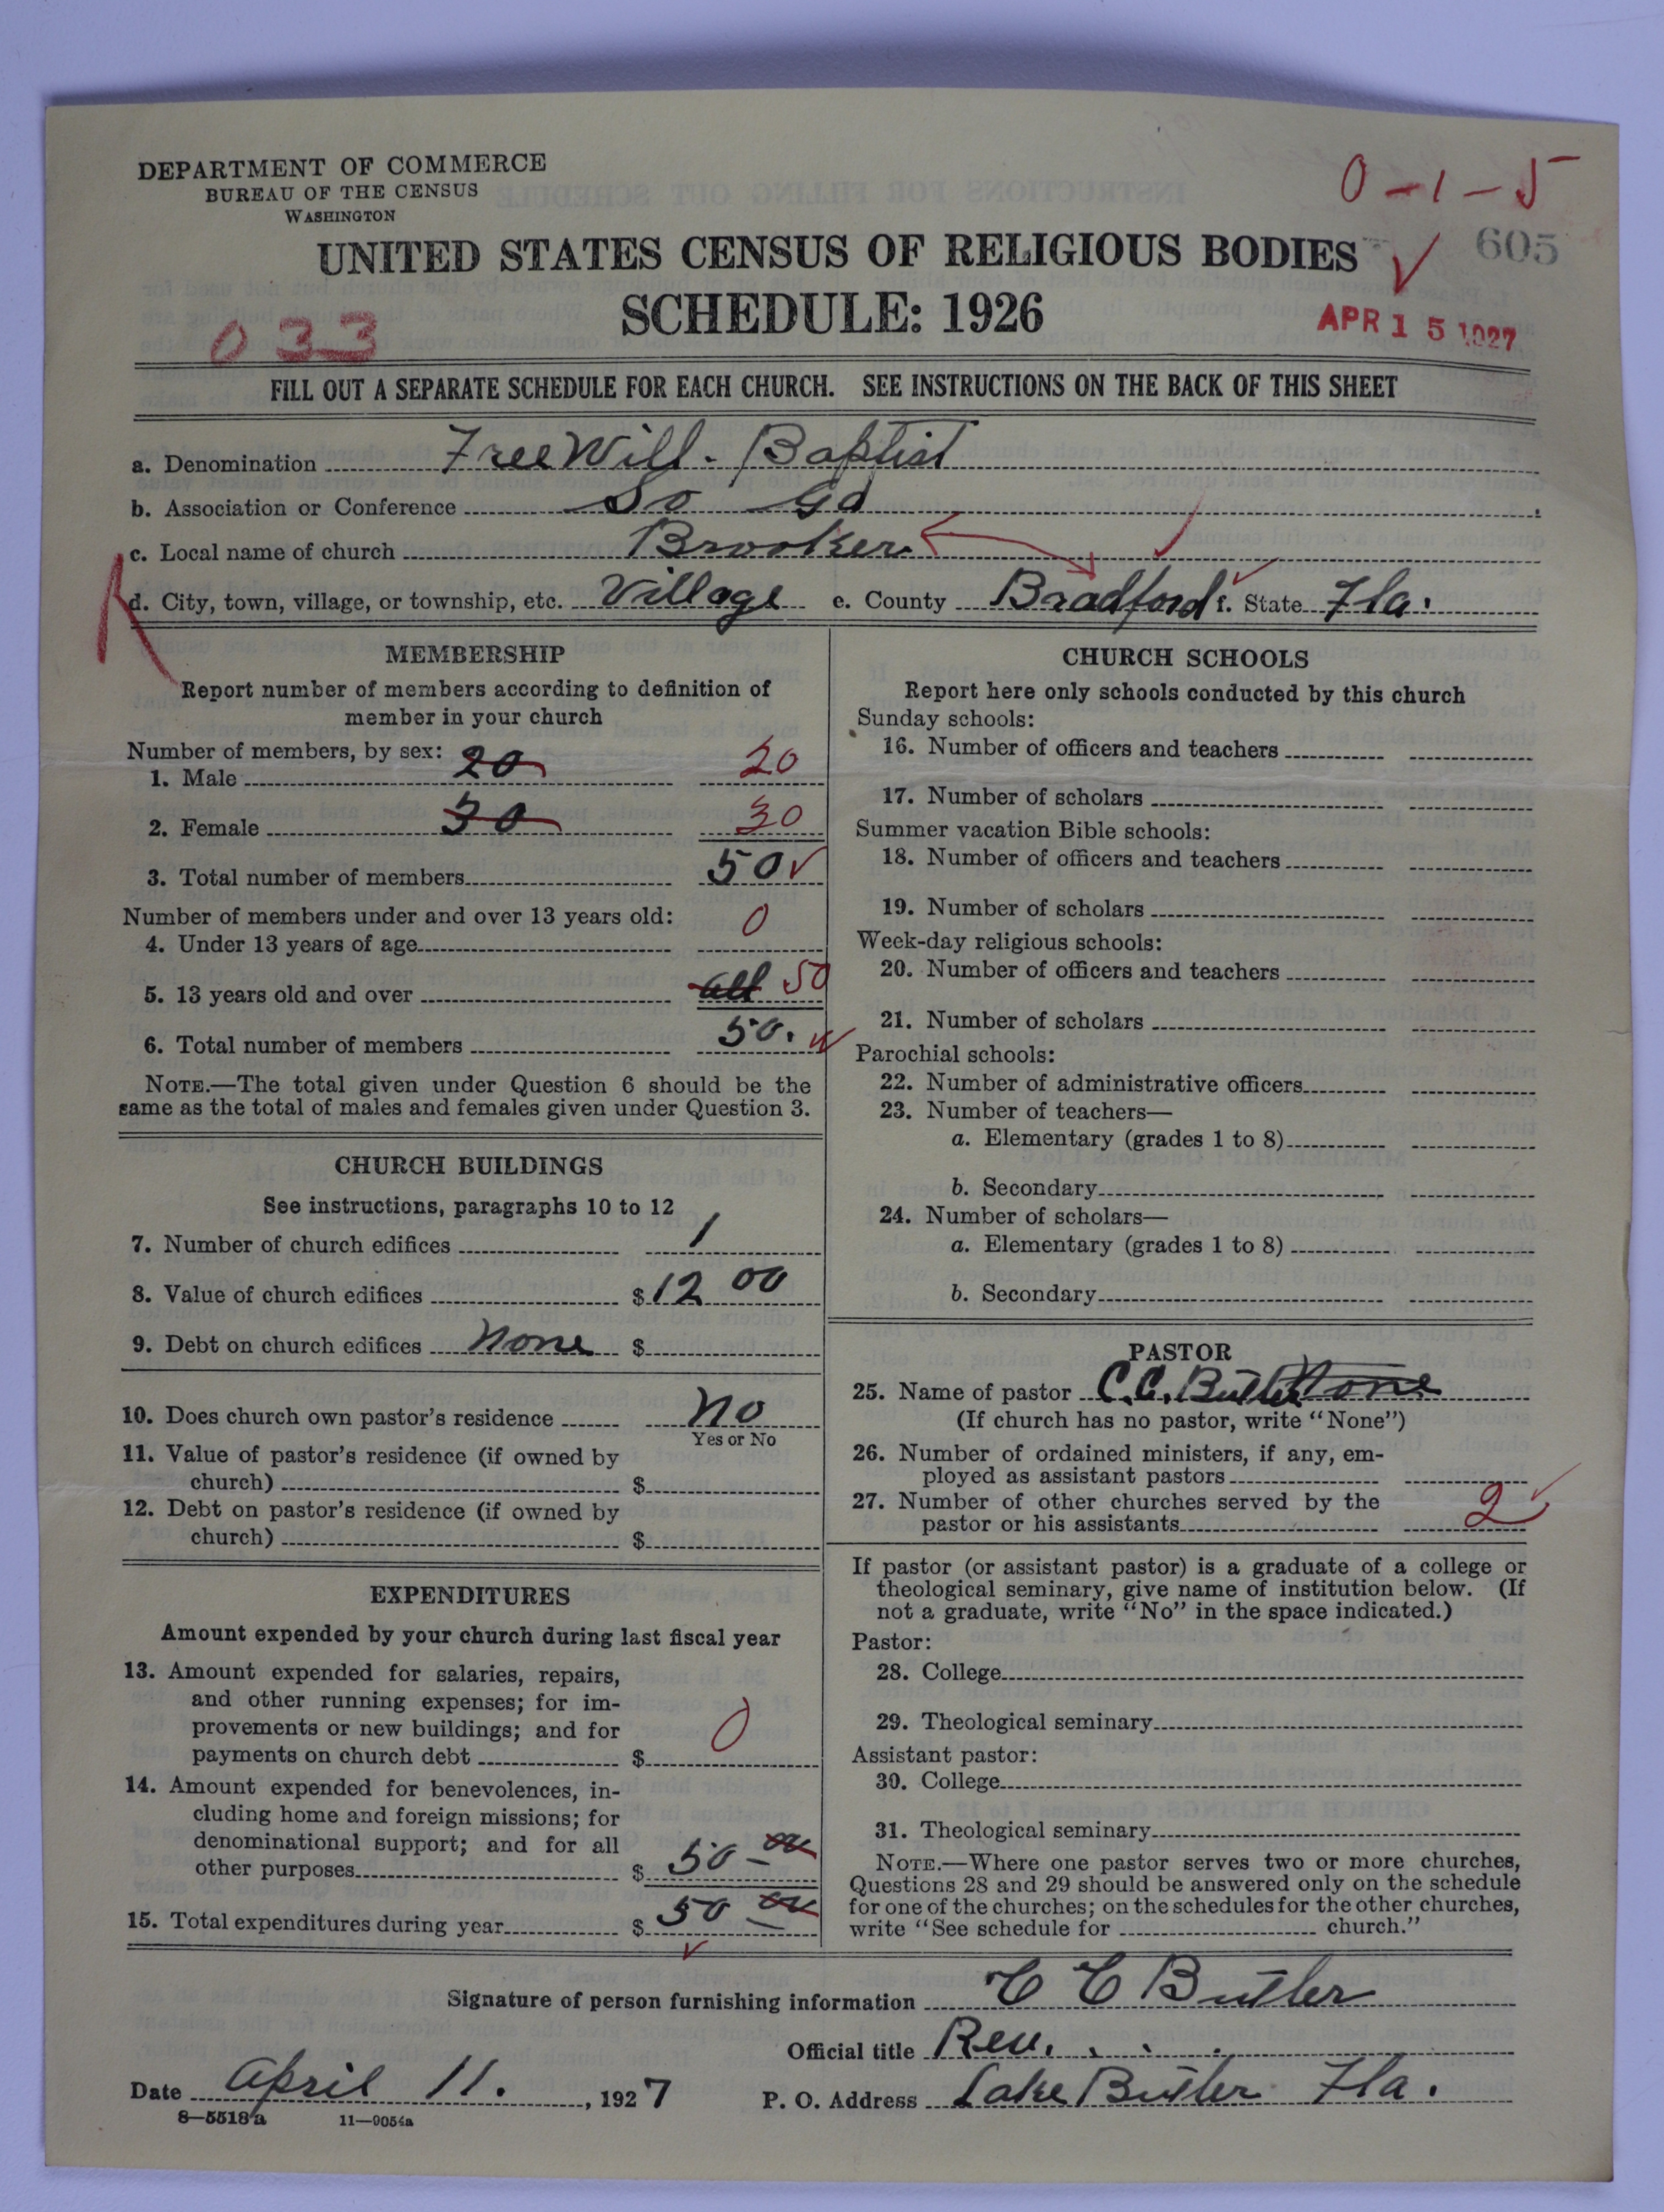 DEPARTMENT OF COMMERCE
BUREAU OF THE CENSUS
WASHINGTON
0-1-5
605
UNITED STATES CENSUS OF RELIGIOUS BODIES
SCHEDULE: 1926
033
APR 15 1927
FILL OUT A SEPARATE SCHEDULE FOR EACH CHURCH. SEE INSTRUCTIONS ON THE BACK OF THIS SHEET
a. Denomination Free Will - Baptist
b. Association or Conference So Ga
c. Local name of church Brooker
d. City, town, village, or township, etc. Village e. County Bradford f. State Fla.
MEMBERSHIP
Report number of members according to definition of
member in your church
Number of members, by sex:
1. Male 20 20
2. Female 30 30
3. Total number of members 50
Number of members under and over 13 years old:
4. Under 13 years of age 0
5. 13 years old and over all 50
6. Total number of members 50.
NOTE.—The total given under Question 6 should be the
same as the total of males and females given under Question 3.
CHURCH BUILDINGS
See instructions, paragraphs 10 to 12
7. Number of church edifices 1
8. Value of church edifices $ 12 00
9. Debt on church edifices None $
10. Does church own pastor's residence No
Yes or No
11. Value of pastor's residence (if owned by
church) $
12. Debt on pastor's residence (if owned by
church) $
EXPENDITURES
Amount expended by your church during last fiscal year
13. Amount expended for salaries, repairs,
and other running expenses; for im-
provements or new buildings; and for
payments on church debt $ 0
14. Amount expended for benevolences, in-
cluding home and foreign missions; for
denominational support; and for all
other purposes $ 50 - 00
15. Total expenditures during year $ 50 00
CHURCH SCHOOLS
Report here only schools conducted by this church
Sunday schools:
16. Number of officers and teachers
17. Number of scholars
Summer vacation Bible schools:
18. Number of officers and teachers
19. Number of scholars
Week-day religious schools:
20. Number of officers and teachers
21. Number of scholars
Parochial schools:
22. Number of administrative officers
23. Number of teachers—
a. Elementary (grades 1 to 8)
b. Secondary
24. Number of scholars—
a. Elementary (grades 1 to 8)
b. Secondary
PASTOR
25. Name of pastor C.C. Butler None
(If church has no pastor, write "None")
26. Number of ordained ministers, if any, em-
ployed as assistant pastors
27. Number of other churches served by the
pastor or his assistants 2
If pastor (or assistant pastor) is a graduate of a college or
theological seminary, give name of institution below. (If
not a graduate, write "No" in the space indicated.)
Pastor:
28. College
29. Theological seminary
Assistant pastor:
30. College
31. Theological seminary
NOTE.—Where one pastor serves two or more churches,
Questions 28 and 29 should be answered only on the schedule
for one of the churches; on the schedules for the other churches,
write "See schedule for church."
Signature of person furnishing information C C Butler
Official title Rev.
Date April 11. , 1927 P. O. Address Lake Butler Fla.
8—5518a 11—9054a